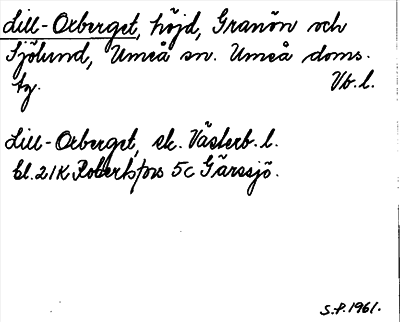 Lill-Orberget, höjd, Granön och
Sjölund, Umeå sn. Umeå doms.
tg. Vb. l.
Lill-Orberget, ek. Västerb. l.
bl. 21K Robertsfors 5c Gärssjö.
S.P. 1961.